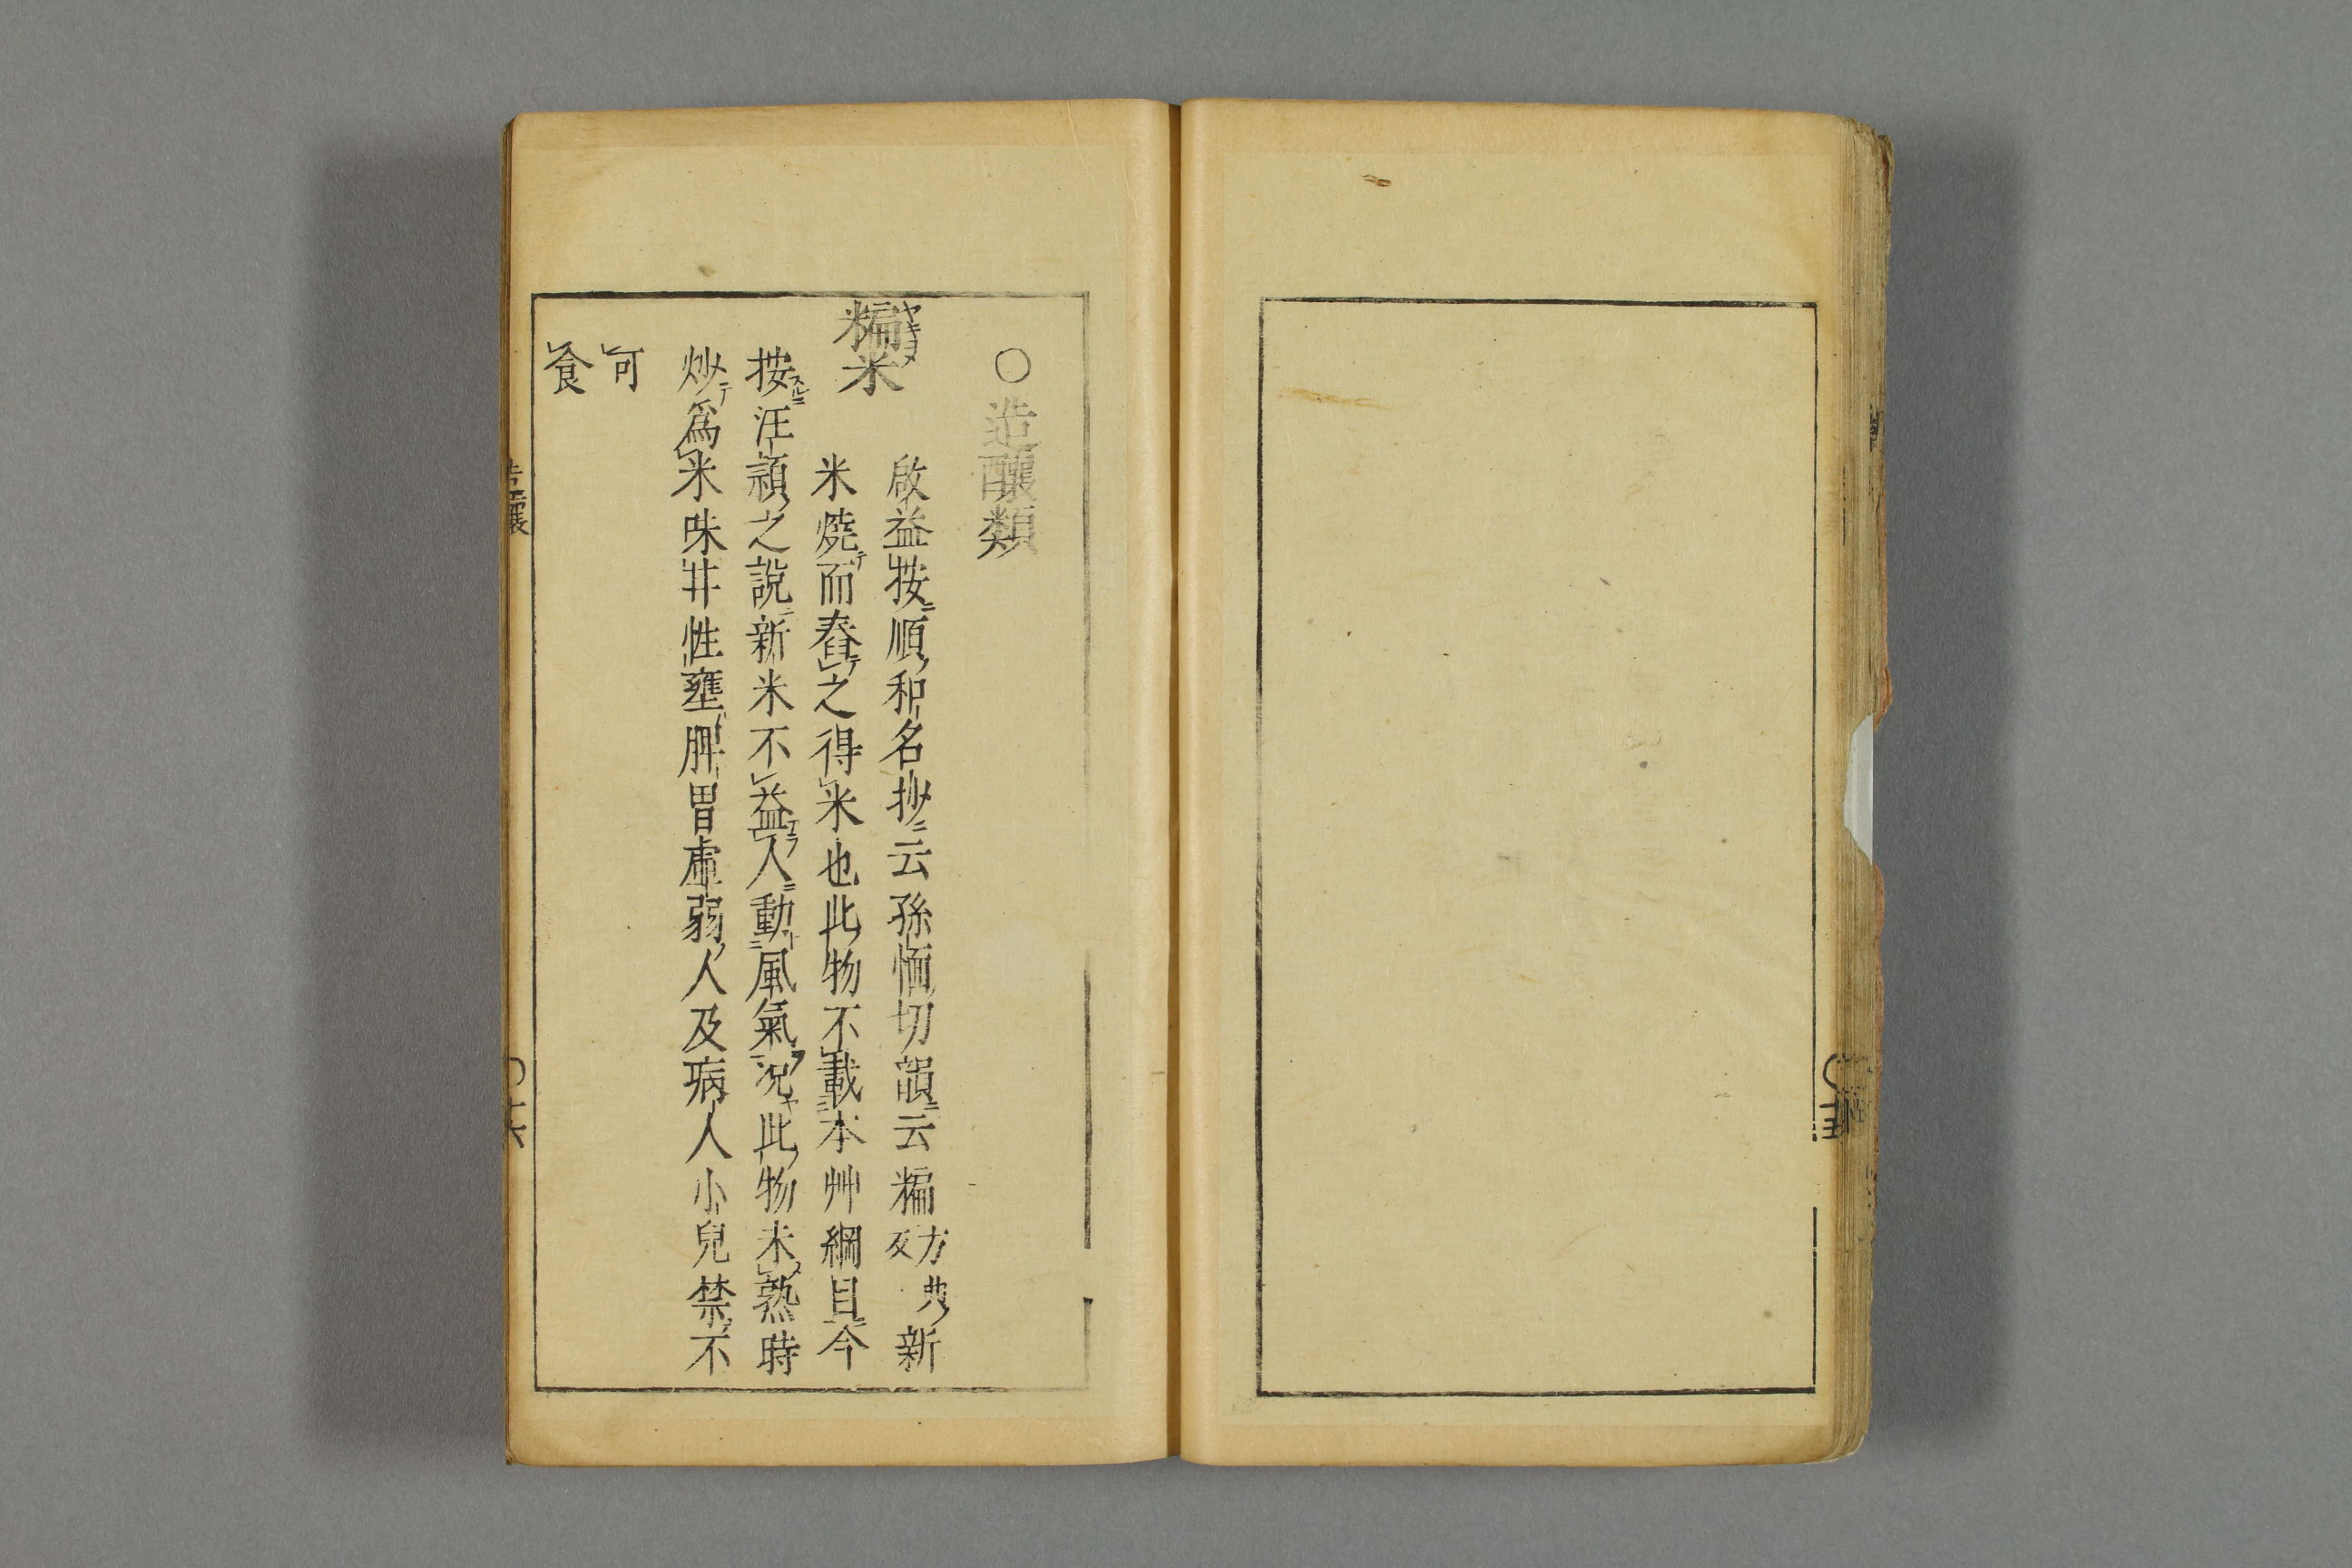 ○造釀類
糄米
啟益按順和名抄云孫愐切韻云糄方典反新
米燒而舂之得米也此物不載本艸綱目今
按汪頴之說新米不益人動風氣况此物未熟時
炒爲米味甘性壅脾胃虛弱人及病人小兒禁不
可
食